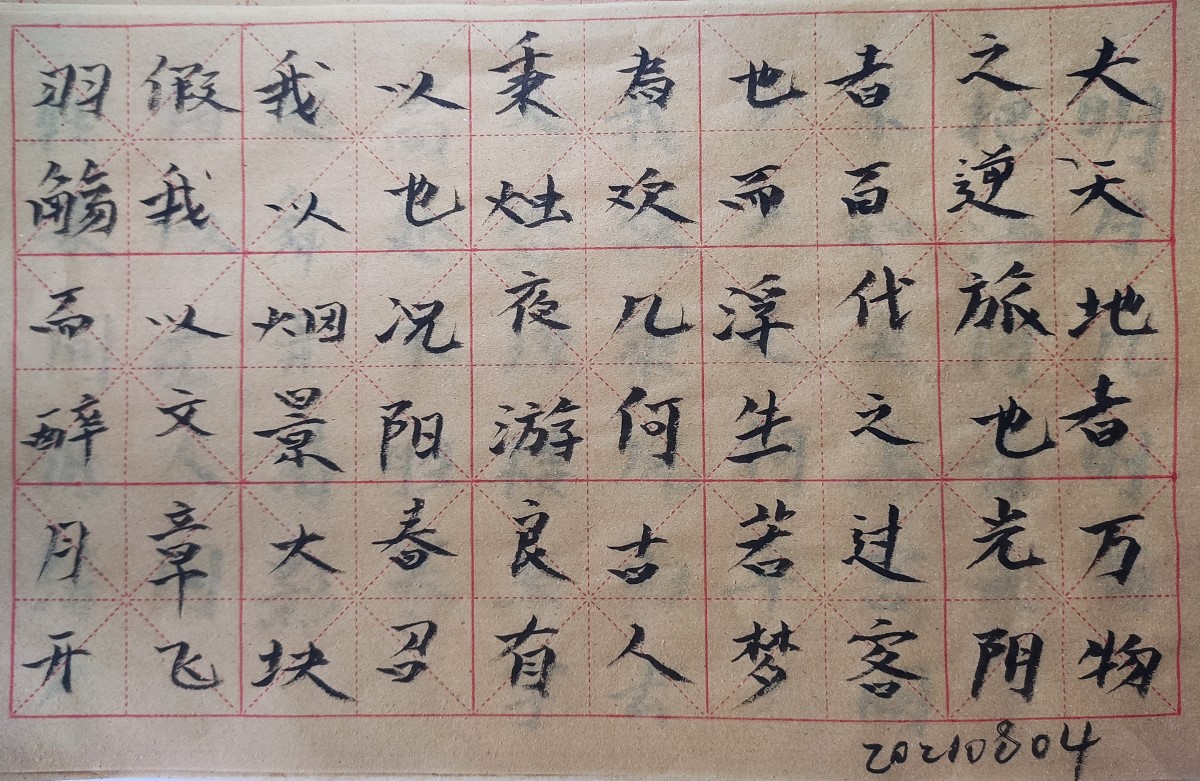 夫天地者万物
之逆旅也光阴
者百代之过客
也而浮生若梦
為欢几何古人
秉烛夜游良有
以也况阳春召
我以烟景大块
假我以文章飞
羽觴而醉月开
20210804